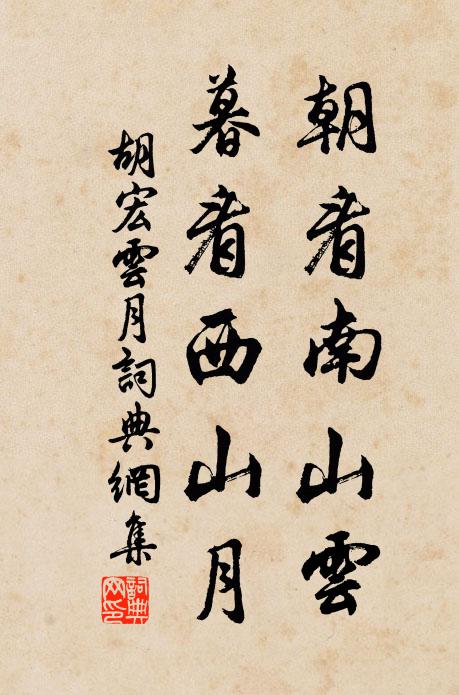 朝看南山雲
暮看西山月
胡宏雲月詞典網集
詞典
网印